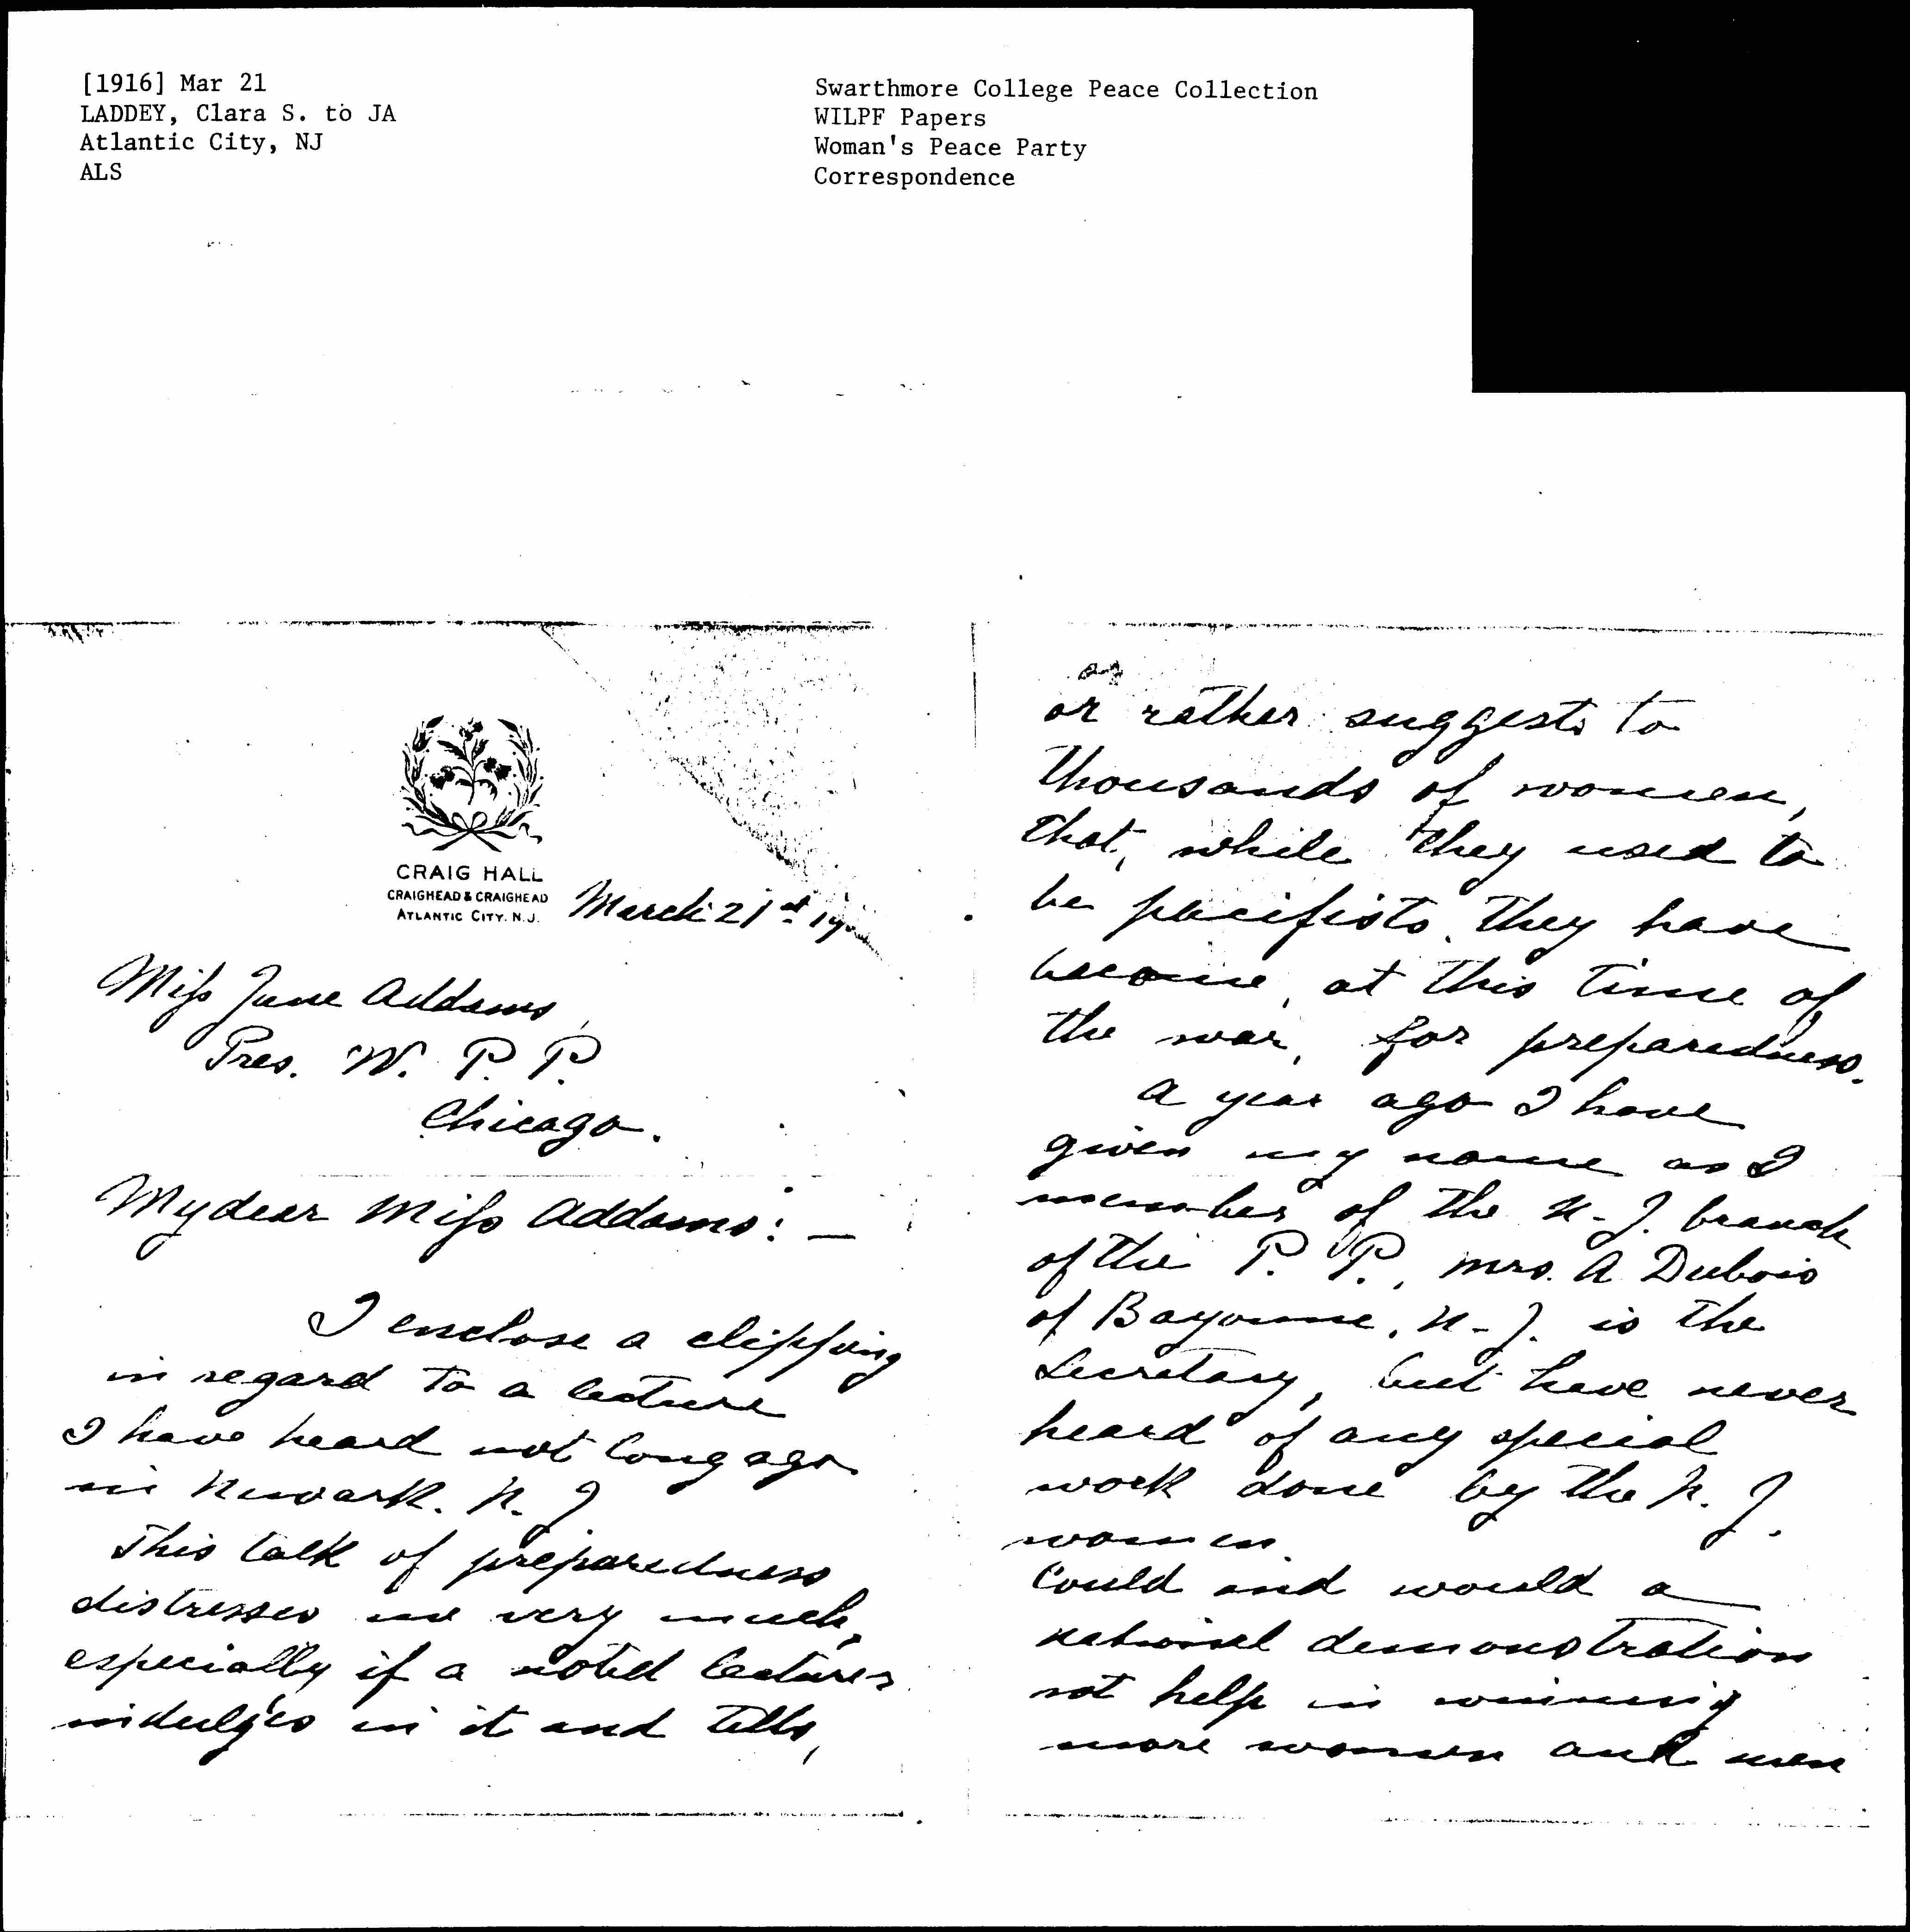 [1916] Mar 21
LADDEY, Clara S. to JA
Atlantic City, NJ
ALS
Swarthmore College Peace Collection
WILPF Papers
Woman's Peace Party
Correspondence
CRAIG HALL
CRAIGHEAD & CRAIGHEAD
ATLANTIC CITY. N.J.
March 21st 19
Miss Jane Addams,
Pres. W. P. P.
Chicago.
My dear Miss Addams: —
I enclose a clipping
in regard to a lecture
I have heard not long ago
in Newark. N. J
This talk of preparedness
distresses me very much,
especially if a noted lecturer
indulges in it and tells,
or rather suggests to
thousands of women,
that, while they used to
be pacifists, they have
become, at this time of
the war, for preparedness.
A year ago I have
given my name as a
member of the N-J. branch
of the P. P., Mrs. A Dubois
of Bayonne, N-J. is the
Secretary, but have never
heard of any special
work done by the N. J.
women.
Could and would a
national demonstration
not help in winning
more women and men